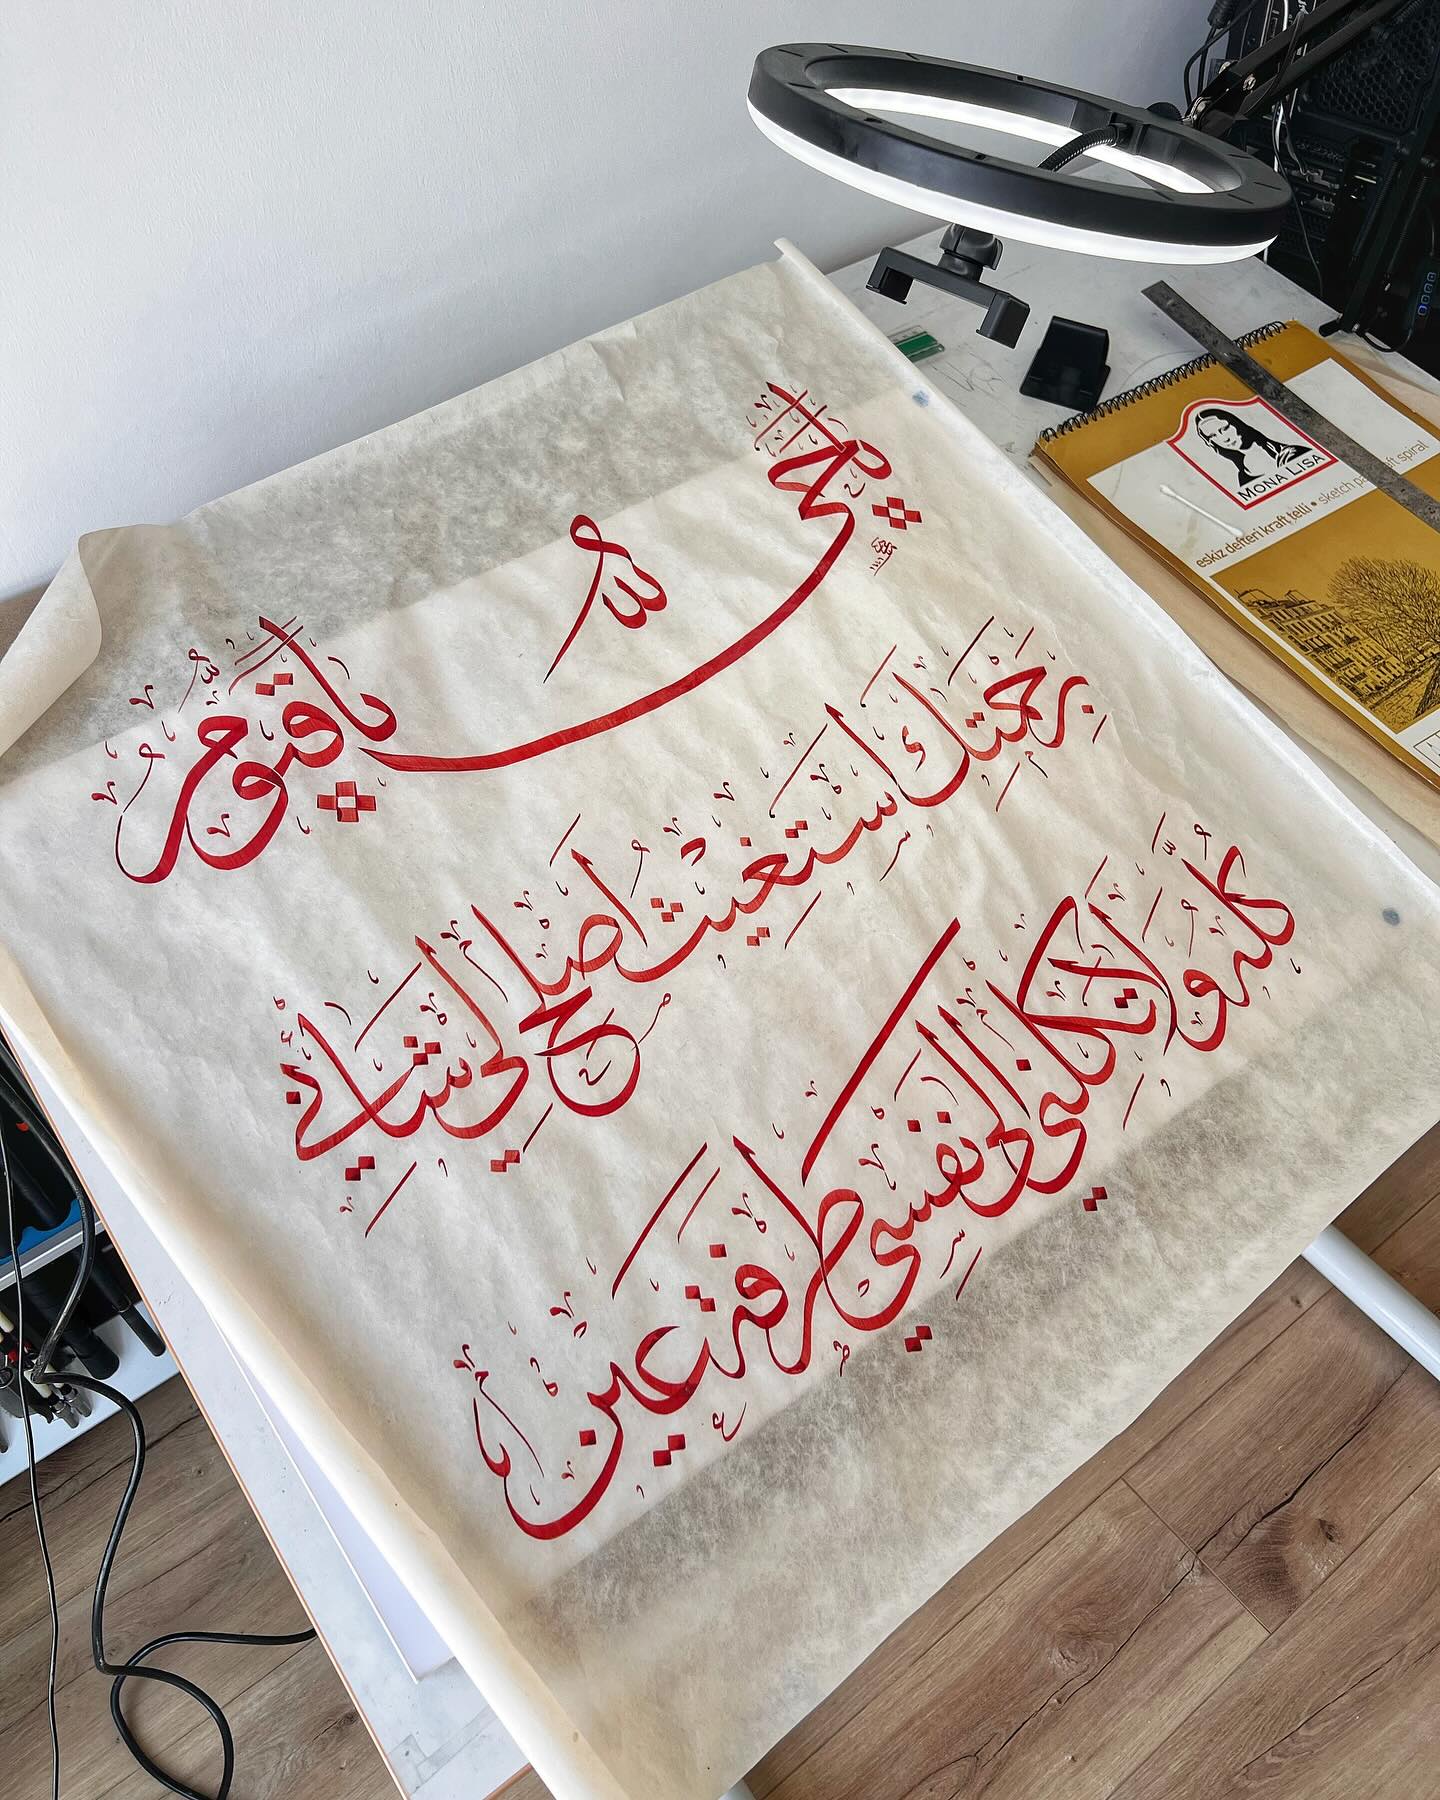 يا حي يا قيوم
الله
برحمتك استغيث اصلح لي شأني
كله ولا تكلني الى نفسي طرفة عين
MONA LISA
eskiz defteri kraft telli • sketch pa
aft spiral